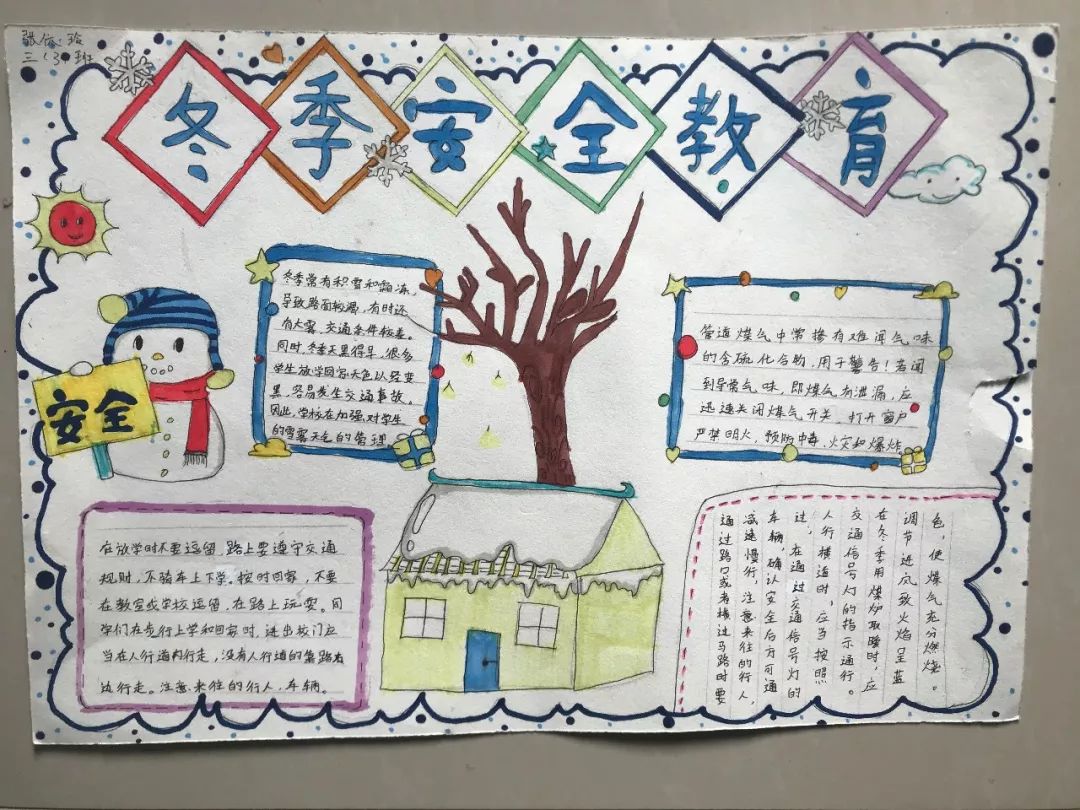 三(3)班
冬季安全教育
冬季常有积雪和霜冻,
导致路面较滑,有时还
有大雾,交通条件较差。
同时,冬季天黑得早,很多
学生放学回家天色以经变
黑,容易发生交通事故。
因此,学校在加强对学生
的雪雾天气的管理
管道煤气中常掺有难闻气味
的含硫化合物,用于警告!若闻
到异常气味,即煤气有泄漏,应
迅速关闭煤气开关,打开窗户
严禁明火,预防中毒、火灾和爆炸
安全
在放学时不要逗留,路上要遵守交通
规则,不骑车上下学。按时回家,不要
在教室或学校逗留,在路上玩耍。同
学们在步行上学和回家时,进出校门应
当在人行道内行走,没有人行道的靠路右
边行走。注意来往的行人,车辆。
通过路口或者横过马路时要
减速慢行,注意来往的行人,
车辆,确认安全后方可通
过,在通过交通信号灯的
人行横道时,应当按照
交通信号灯的指示通行。
在冬季用煤炉取暖时,应
调节进风致火焰呈蓝
色,使煤气充分燃烧。